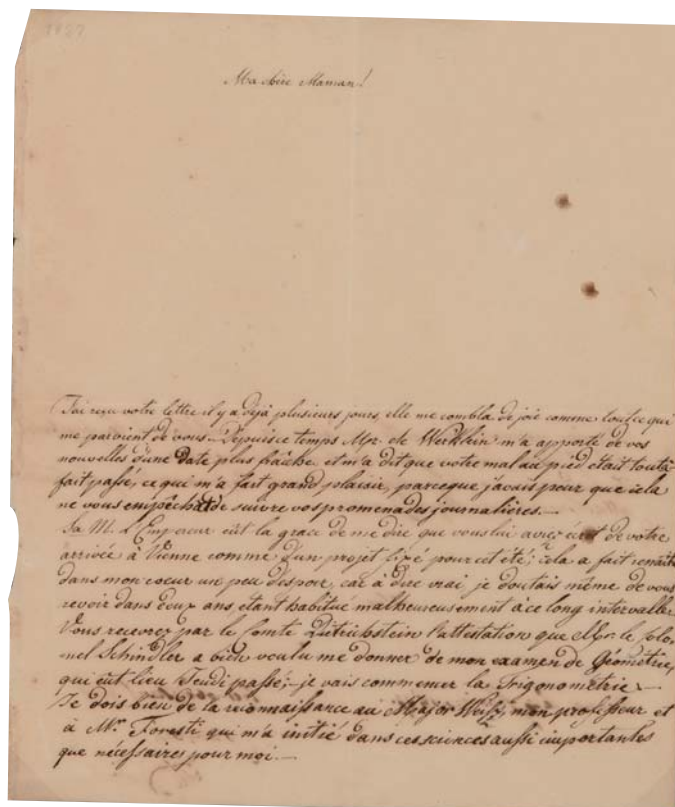 1827
Ma chère Maman!
J'ai reçu votre lettre il y a déjà plusieurs jours, elle me combla de joie comme tout ce qui
me parvient de vous. Depuis ce temps Mgr. de Werklein m'a apporté de vos
nouvelles d'une date plus fraîche, et m'a dit que votre mal au pied était tout à
fait passé, ce qui m'a fait grand plaisir, parceque j'avais peur que cela
ne vous empêchat de suivre vos promenades journalières.—
Sa M. L'Empereur eût la grace de me dire que vous lui aviez écrit de votre
arrivée à Vienne comme d'un projet fixé pour cet été; cela a fait renaître
dans mon coeur un peu d'espoir, car à dire vrai je doutais même de vous
revoir dans deux ans, étant habitué malheureusement à ce long intervalle.
Vous recevrez par le Comte Dietrichstein l'attestation que Mgr. le Colo-
nel Schindler a bien voulu me donner de mon examen de Géométrie,
qui eût lieu Jeudi passé;— je vais commencer la Trigonométrie.—
Je dois bien de la reconnaissance au Major Weiss, mon professeur et
à Mr. Foresti qui m'a initié dans ces sciences aussi importantes
que nécessaires pour moi.—